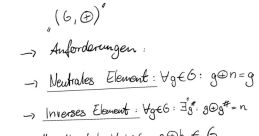 "(G, ⊕)"
→ Anforderungen:
→ Neutrales Element: ∀g∈G: g⊕n=g
→ Inverses Element: ∀g∈G: ∃g#: g⊕g#=n